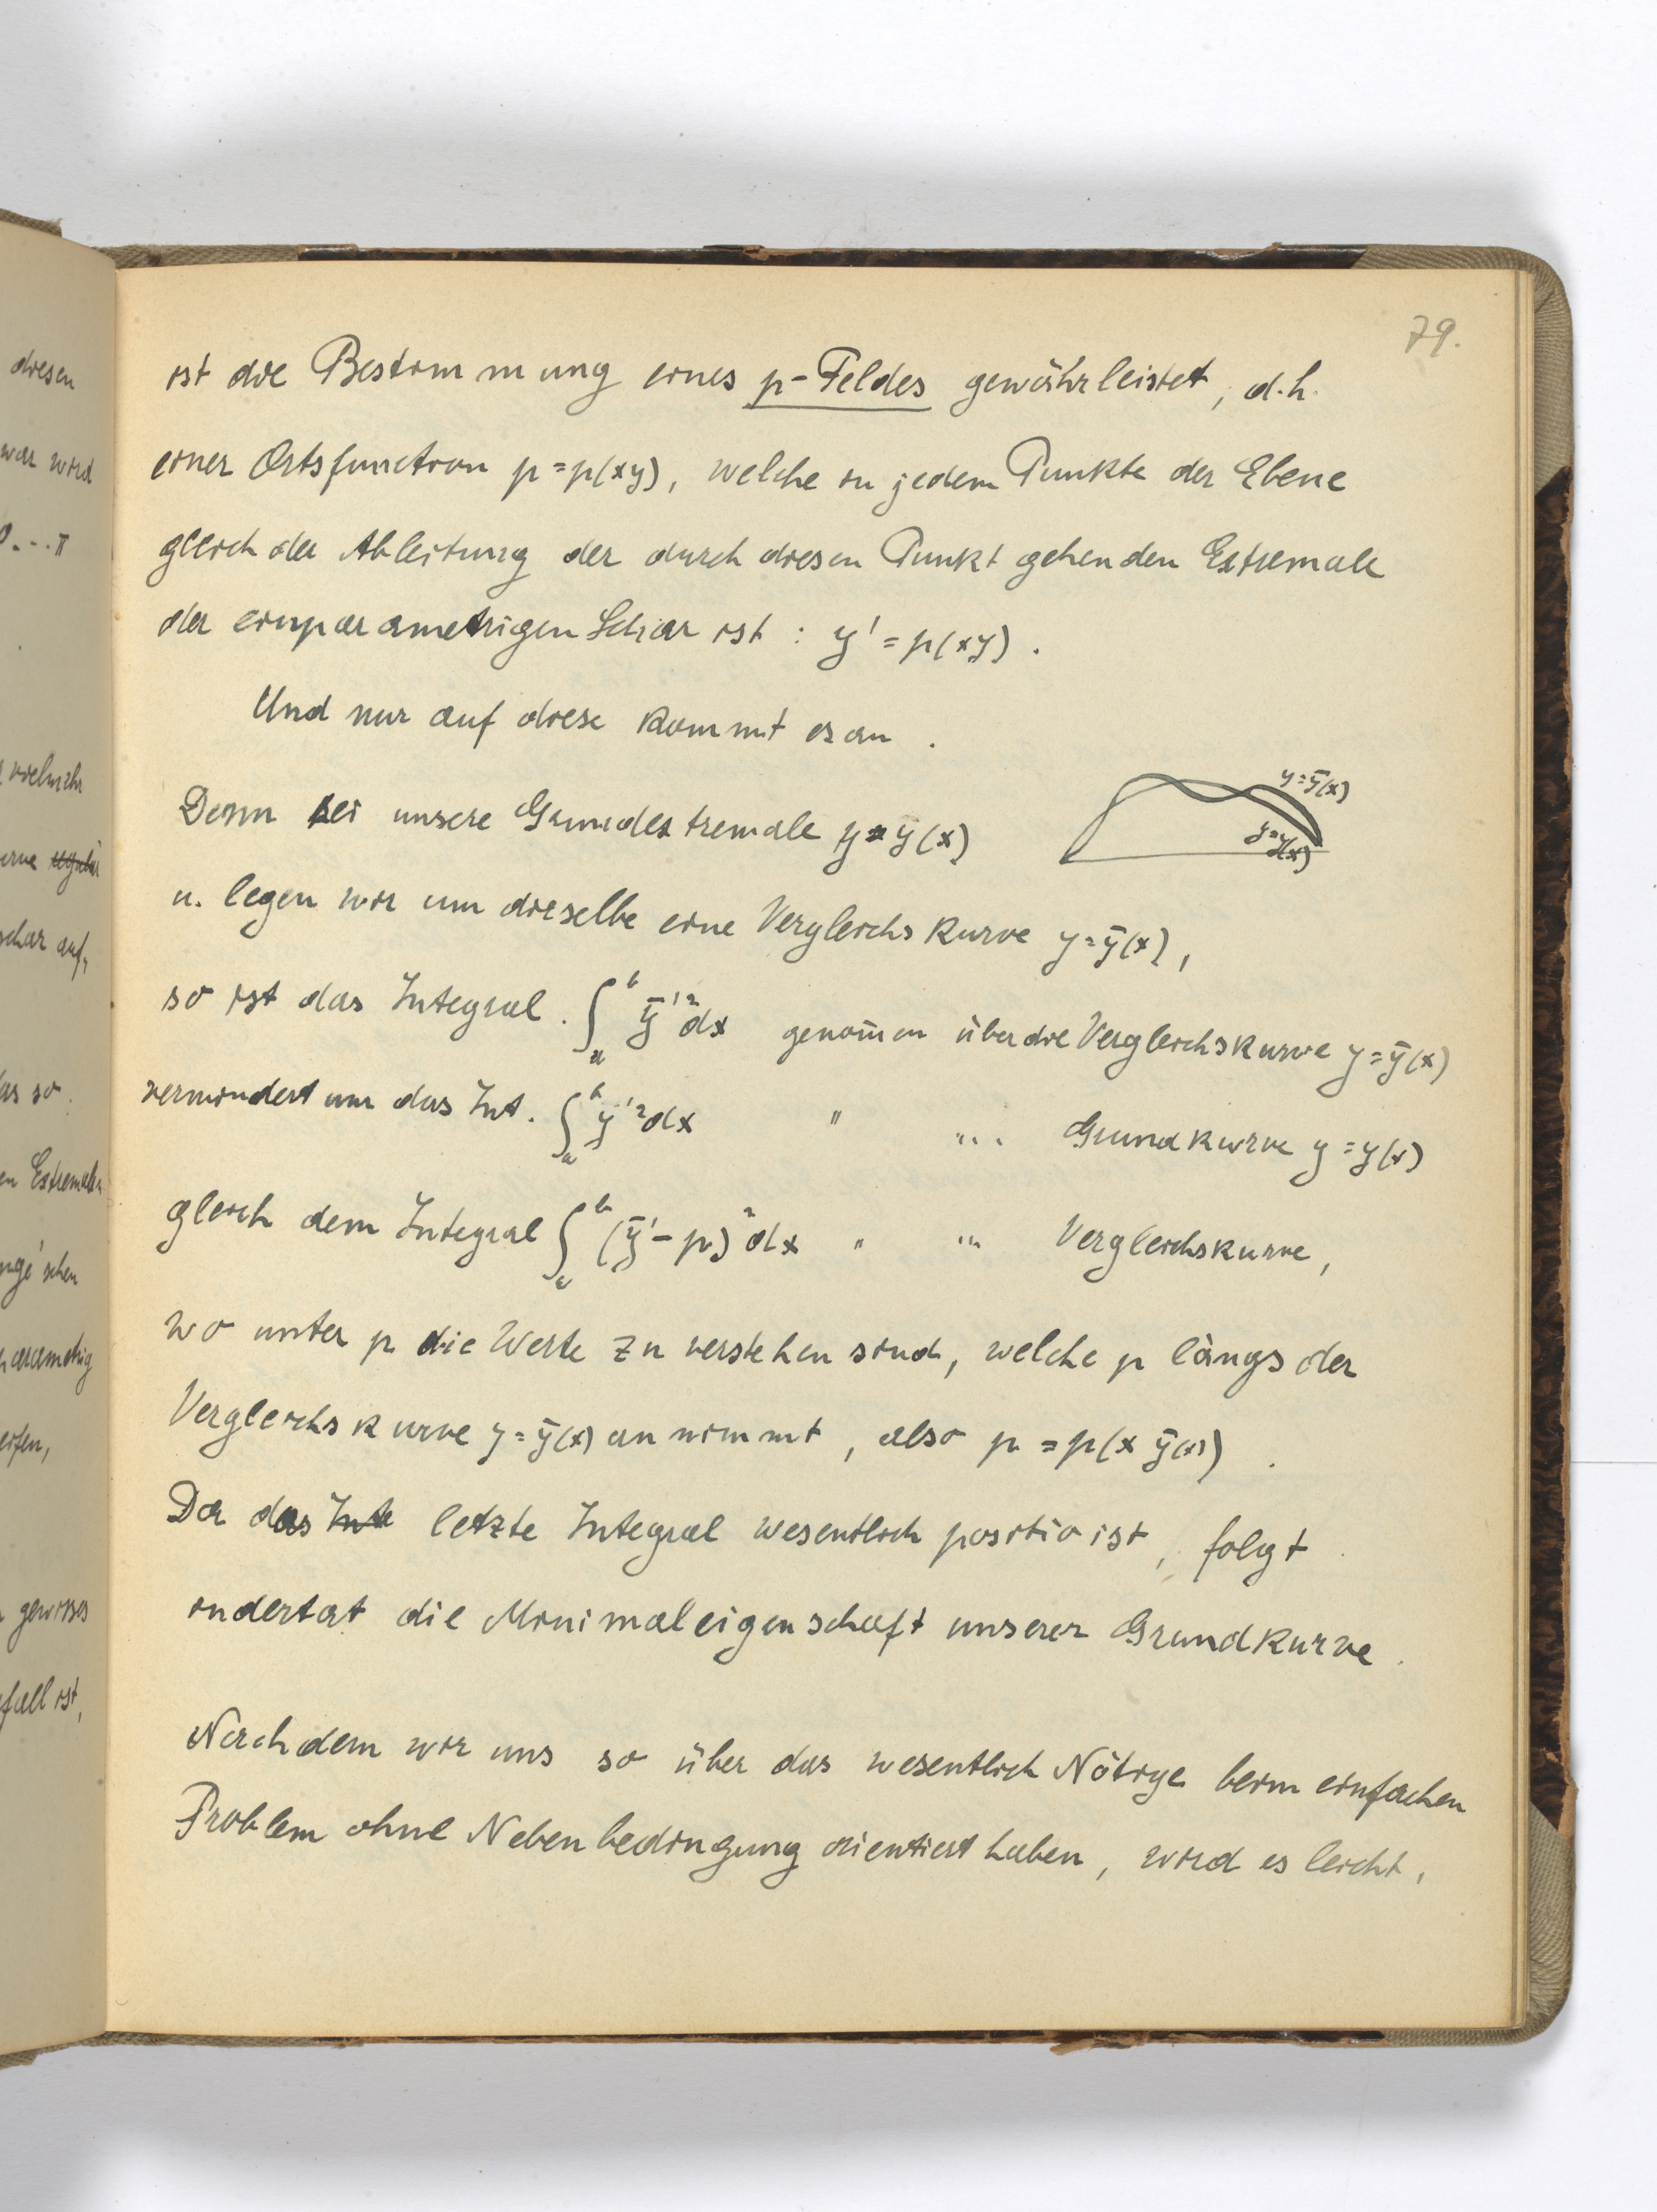 diesen
war wird
0...π
vielmehr
schar auf,
das so
en Extremalen
nge'schen
parametrig
eifen,
gewisses
fall ist,
79.
ist die Bestimmung eines p-Feldes gewährleistet, d.h.
einer Ortsfunction p=p(xy), welche in jedem Punkte der Ebene
gleich der Ableitung der durch diesen Punkt gehenden Extremale
der einparametrigen Schar ist : y'=p(xy).
Und nur auf diese kommt es an.
y=ȳ(x)
y=y(x)
Denn sei unsere Grundextremale y=y(x)
u. legen wir um dieselbe eine Vergleichskurve y=ȳ(x),
so ist das Integral ∫ₐᵇ ȳ'²dx genom̄en über die Vergleichskurve y=ȳ(x)
vermindert um das Int. ∫ₐᵇ y'²dx " "... Grundkurve y=y(x)
gleich dem Integral ∫ₐᵇ (ȳ'-p)²dx " "... Vergleichskurve,
wo unter p die Werte zu verstehen sind, welche p längs der
Vergleichskurve y=ȳ(x) annimmt, also p=p(x ȳ(x)).
Da das Inte letzte Integral wesentlich positiv ist, folgt
indertat die Minimaleigenschaft unserer Grundkurve.
Nachdem wir uns so über das wesentlich Nötige beim einfachen
Problem ohne Nebenbedingung orientiert haben, wird es leicht,